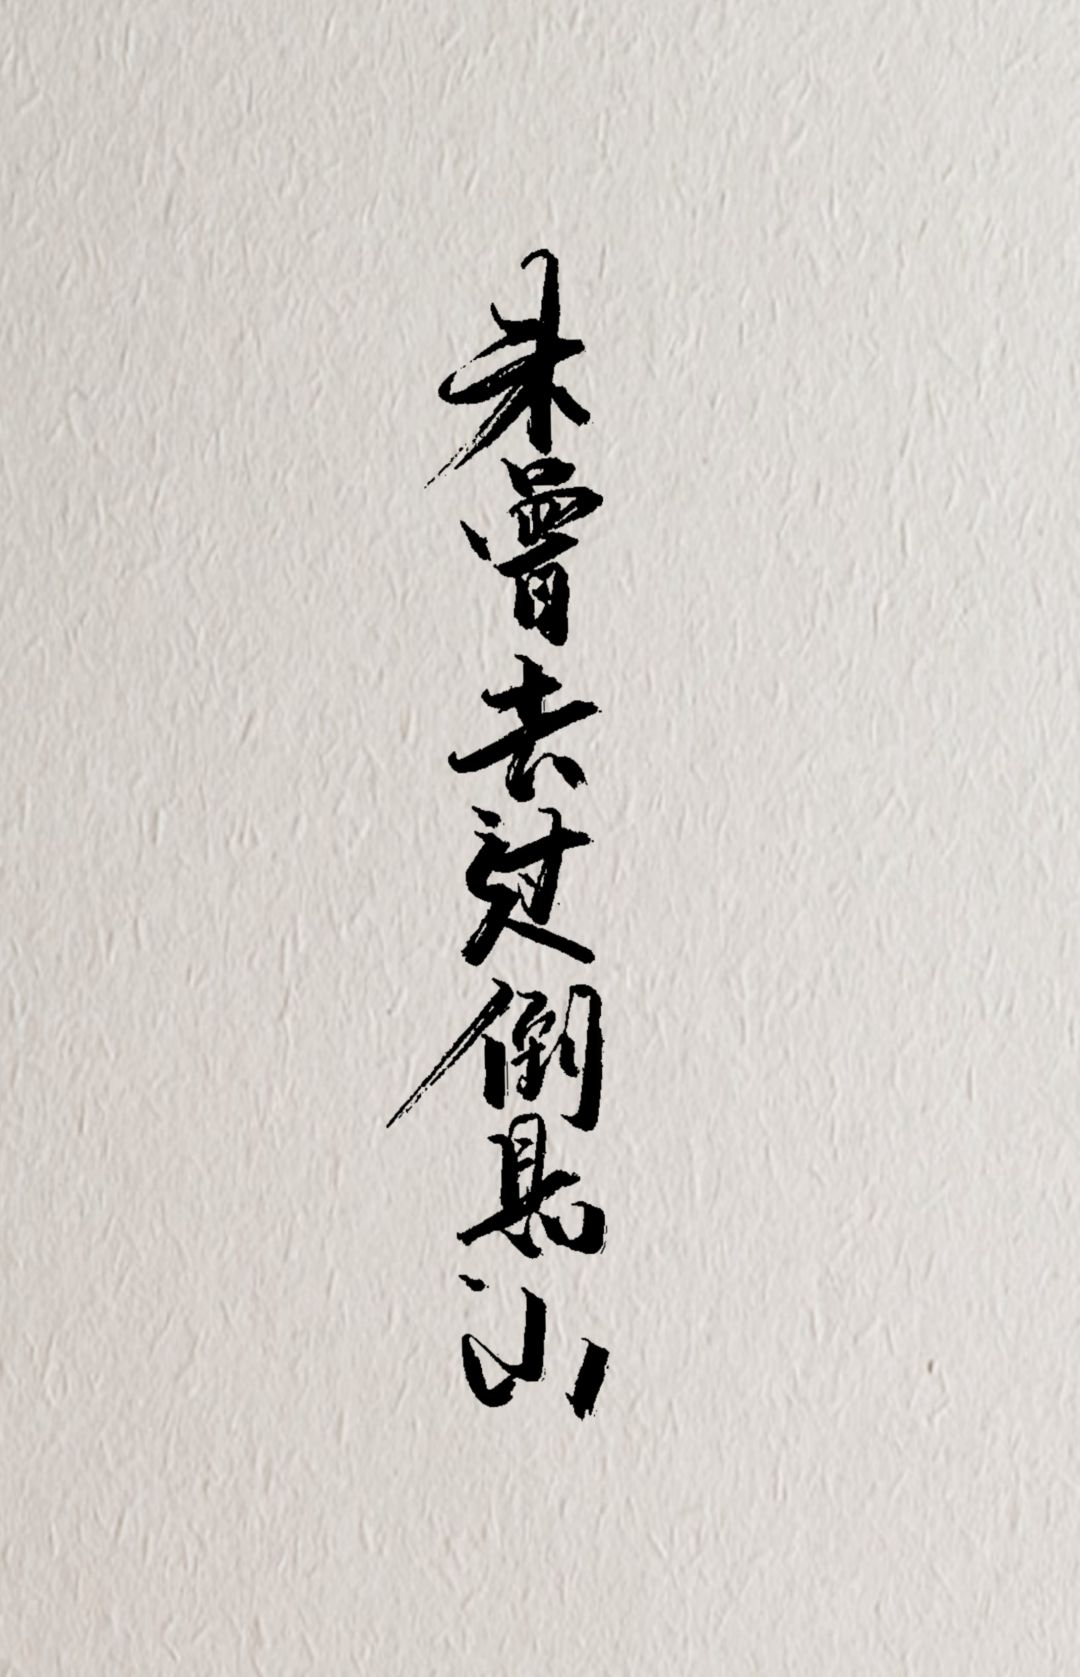 未曾去过倒悬山